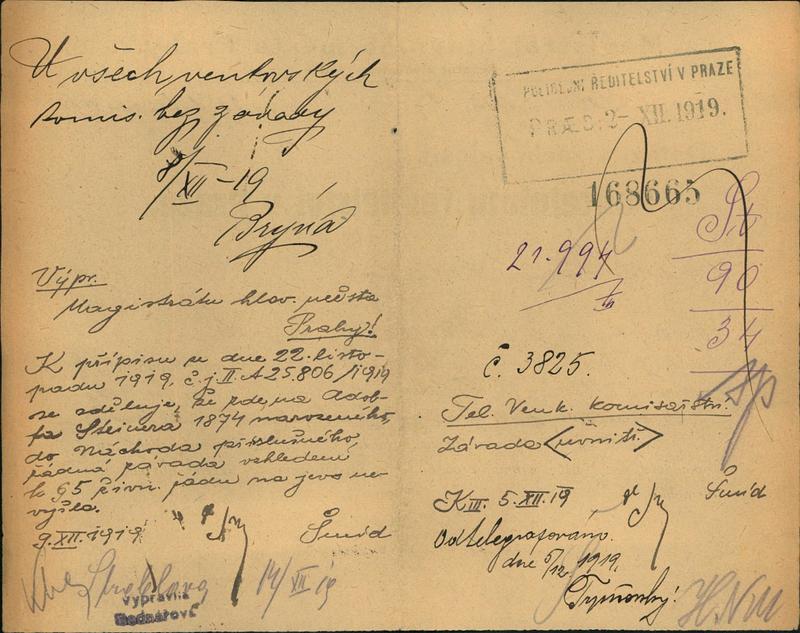 U všech venkovských
komis. bez závady
8/XII -19
Brýna
Výpr.
Magistrátu hlav. města
Prahy!
K přípisu ze dne 22. listo-
padu 1919, č.j. II. A 25.806/1919
se sděluje, že zde na Adol-
fa Steinera 1874 narozeného,
do Náchoda příslušného,
žádná závada vzhledem
k § 5 živn. řádu na jevo ne-
vyšla.
9.XII.1919
Šmíd
14/XII 19
Vypravila
Bednářová
POLICEJNÍ ŘEDITELSTVÍ V PRAZE
PRÆS: 2- XII. 1919.
168665
21.994
St
90
34
č. 3825.
Tel. Venk. komisařství.
Závada
K III. 5.XII.19
Šmíd
Odtelegrafováno
dne 5/12. 1919.